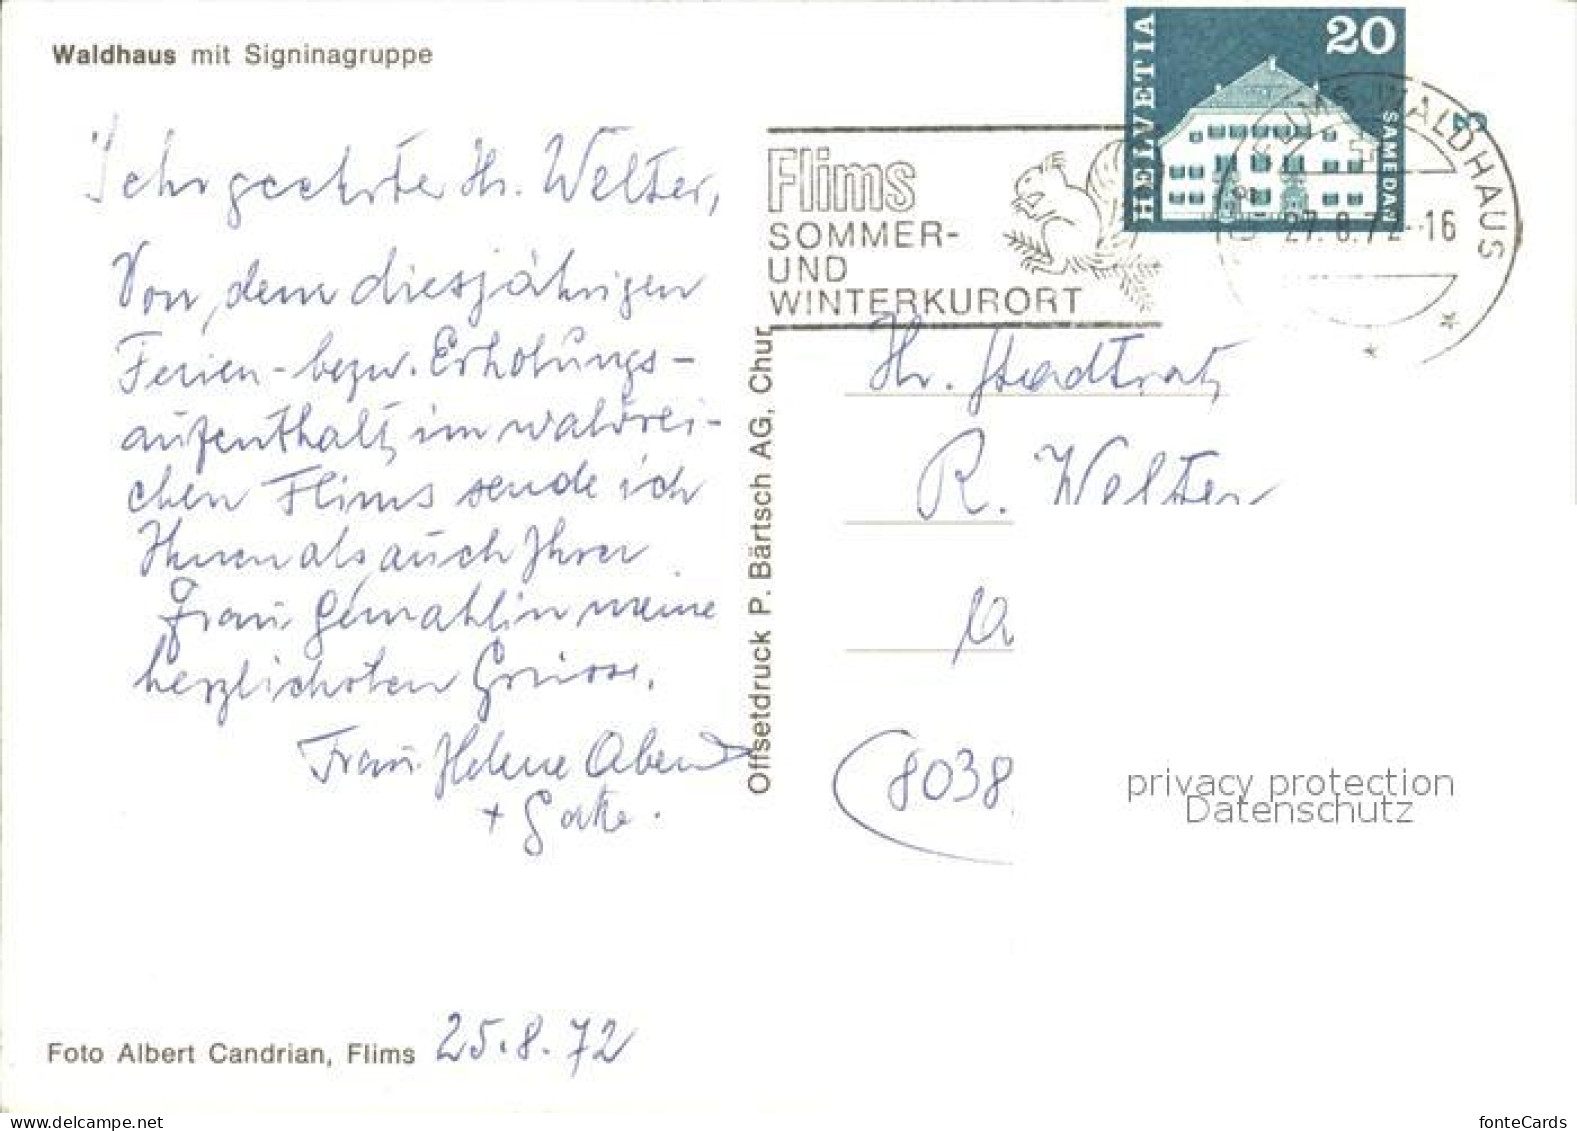 Waldhaus mit Signinagruppe
Sehr geehrter Hr. Welter,
Von dem diesjährigen
Ferien- bezw. Erholungs-
aufenthalt, im waldrei-
chen Flims sende ich
Ihnen als auch Ihrer
Frau Gemahlin meine
herzlichsten Grüsse.
Frau Helene Abend
+
Foto Albert Candrian, Flims 25.8.72
Offsetdruck P. Bärtsch AG, Chur
Flims
SOMMER-
UND
WINTERKURORT
HELVETIA
20
SAMEDAN
FLIMS-WALDHAUS
27.8.72-16
Hr. Stadtrat,
R. Welter
8038
privacy protection
Datenschutz
delcampe.net
fonteCards